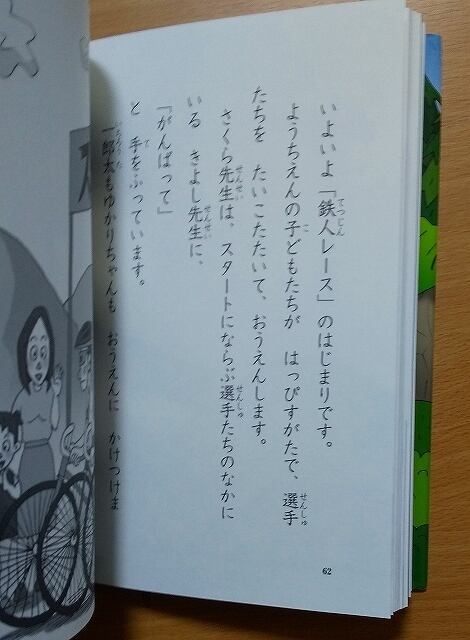 いよいよ「鉄人レース」のはじまりです。
ようちえんの子どもたちが　はっぴすがたで、選手
たちを　たいこたたいて、おうえんします。
さくら先生は、スタートにならぶ選手たちのなかに
いる　きよし先生に、
「がんばって」
と　手をふっています。
一郎太もゆかりちゃんも　おうえんに　かけつけま
62